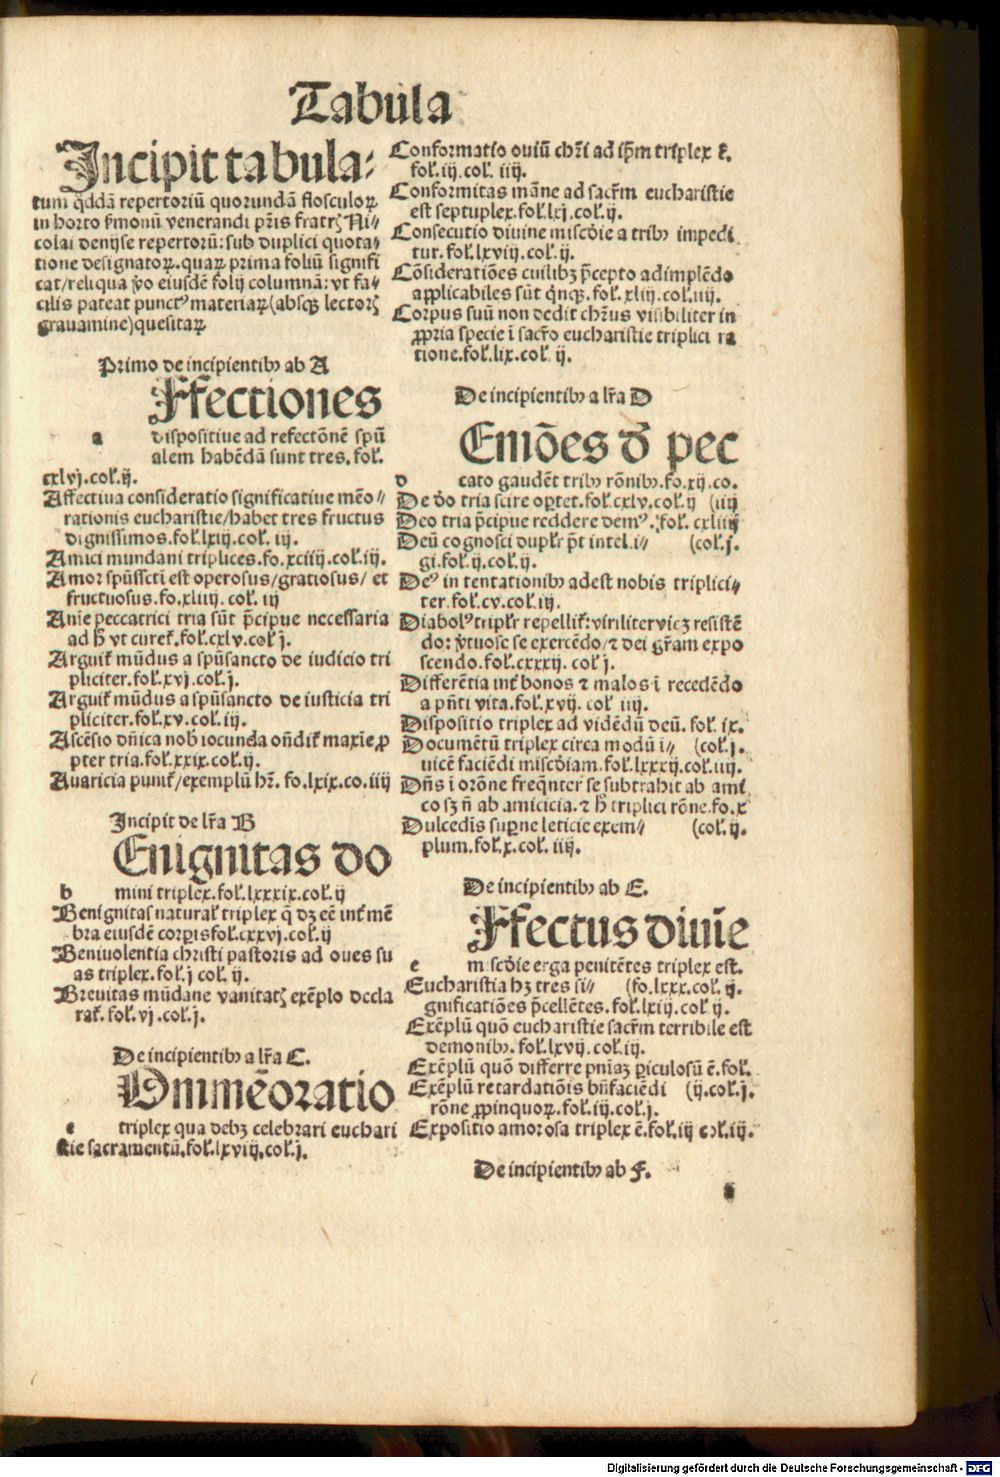 Tabula
Incipit tabula-
tum qͥddã repertoriũ quorundã flosculoꝝ
in horto ẜmonũ venerandi pr̃is fratrꝭ Ni-
colai denijse repertorũ: sub duplici quota-
tione designatoꝝ. quaꝝ prima foliũ signifi
cat/reliqua ṽo eiusdẽ folij columnã: vt fa-
cilis pateat punctꝰ materiaꝝ (absqꝫ lectorꝭ
grauamine) quesitaꝝ
Primo de incipientibꝰ ab A
Ffectiones
a dispositiue ad refectõnẽ spũ
alem habẽdã sunt tres. fol.
cxlvj. col. ij.
Affectiua consideratio significatiue mẽo-
rationis eucharistie/habet tres fructus
dignissimos. fol. lxiij. col. iij.
Amici mundani triplices. fo. xciiij. col. iij.
Amor spũsscti est operosus/gratiosus/ et
fructuosus. fo. xliiij. col. iij
Anĩe peccatrici tria sũt p̃cipue necessaria
ad h̃ vt curet̃. fol. cxlv. col j.
Arguit̃ mũdus a spũsancto de iudicio tri
pliciter. fol. xvj. col. j.
Arguit̃ mũdus a spũsancto de iusticia tri
pliciter. fol. xv. col. iij.
Ascẽsio dñica nob̃ iocunda oñdit̃ maxĩe ꝓ
pter tria. fol. xxix. col. ij.
Auaricia punit̃/exemplũ hr̃. fo. lxix. co. iiij
Incipit de lr̃a B
Enignitas do
b mini triplex. fol. lxxxix. col. ij
Benignitas natural̃ triplex q̃ dꝫ eẽ int̃ mẽ
bra eiusdẽ corꝑis fol. cxxvj. col. ij
Beniuolentia christi pastoris ad oues su
as triplex. fol. j col. ij.
Breuitas mũdane vanitatꝭ exẽplo decla
rat̃. fol. vj. col. j.
De incipientibꝰ a lr̃a C.
Ommẽoratio
c triplex qua debꝫ celebrari euchari
stie sacramentũ. fol. lxviij. col. j.
Conformatio ouiũ chr̃i ad ip̃m triplex ẽ.
fol. iij. col. iiij.
Conformitas mãne ad sacr̃m eucharistie
est septuplex. fol. lxj. col. ij.
Consecutio diuine miscd̃ie a tribꝰ impedi
tur. fol. lxviij. col. ij.
Cõsideratiões cuilibꝫ p̃cepto adimplẽdo
applicabiles sũt qͥnqꝫ. fol. xliij. col. iiij.
Corpus suũ non dedit chr̃us visibiliter in
ꝓpria specie ĩ sacr̃o eucharistie triplici ra
tione. fol. lix. col. ij.
De incipientibꝰ a lr̃a D
Emões d̃ pec
d cato gaudẽt tribꝰ rõnibꝰ. fo. xij. co.
De d̃o tria scire oꝑtet. fol. cxlv. col. ij (iiij
Deo tria p̃cipue reddere demꝰ. fol. cxliiij
Deũ cognosci dupl̃r p̃t intel.i- (col. j.
gi. fol. ij. col. ij.
Deꝰ in tentationibꝰ adest nobis triplici-
ter. fol. cv. col. iij.
Diabolꝰ tripl̃r repellit̃: viriliter vicꝫ resistẽ
do: ṽtuose se exercẽdo/⁊ dei gr̃am expo
scendo. fol. cxxxij. col j.
Differẽtia int̃ bonos ⁊ malos ĩ recedẽdo
a pñti vita. fol. xvij. col iiij.
Dispositio triplex ad vidẽdũ deũ. fol. ix.
Documẽtũ triplex circa modũ i- (col. j.
uicẽ faciẽdi miscd̃iam. fol. lxxxij. col. iiij.
Dñs ĩ orõne freq̃nter se subtrahit ab amĩ
co sꝫ ñ ab amicicia. ⁊ h̃ triplici rõne. fo. x
Dulcedĩs suꝑne leticie exem- (col. ij.
plum. fol. x. col. iij.
De incipientibꝰ ab E.
Ffectus diuĩe
e miscd̃ie erga penitẽtes triplex est.
Eucharistia hꝫ tres si- (fo. lxxx. col. ij.
gnificatiões p̃cellẽtes. fol. lxij. col ij.
Exẽplũ quõ eucharistie sacr̃m terribile est
demonibꝰ. fol. lxvij. col. iij.
Exẽplũ quõ differre pñiaꝫ ꝑiculosũ ẽ. fol.
Exẽplũ retardatiõis bñfaciẽdi (ij. col. j.
rõne ꝓpinquoꝝ. fol. iij. col. j.
Expositio amorosa triplex ẽ. fol. iij col. iij.
De incipientibꝰ ab F.
Digitalisierung gefördert durch die Deutsche Forschungsgemeinschaft - DFG